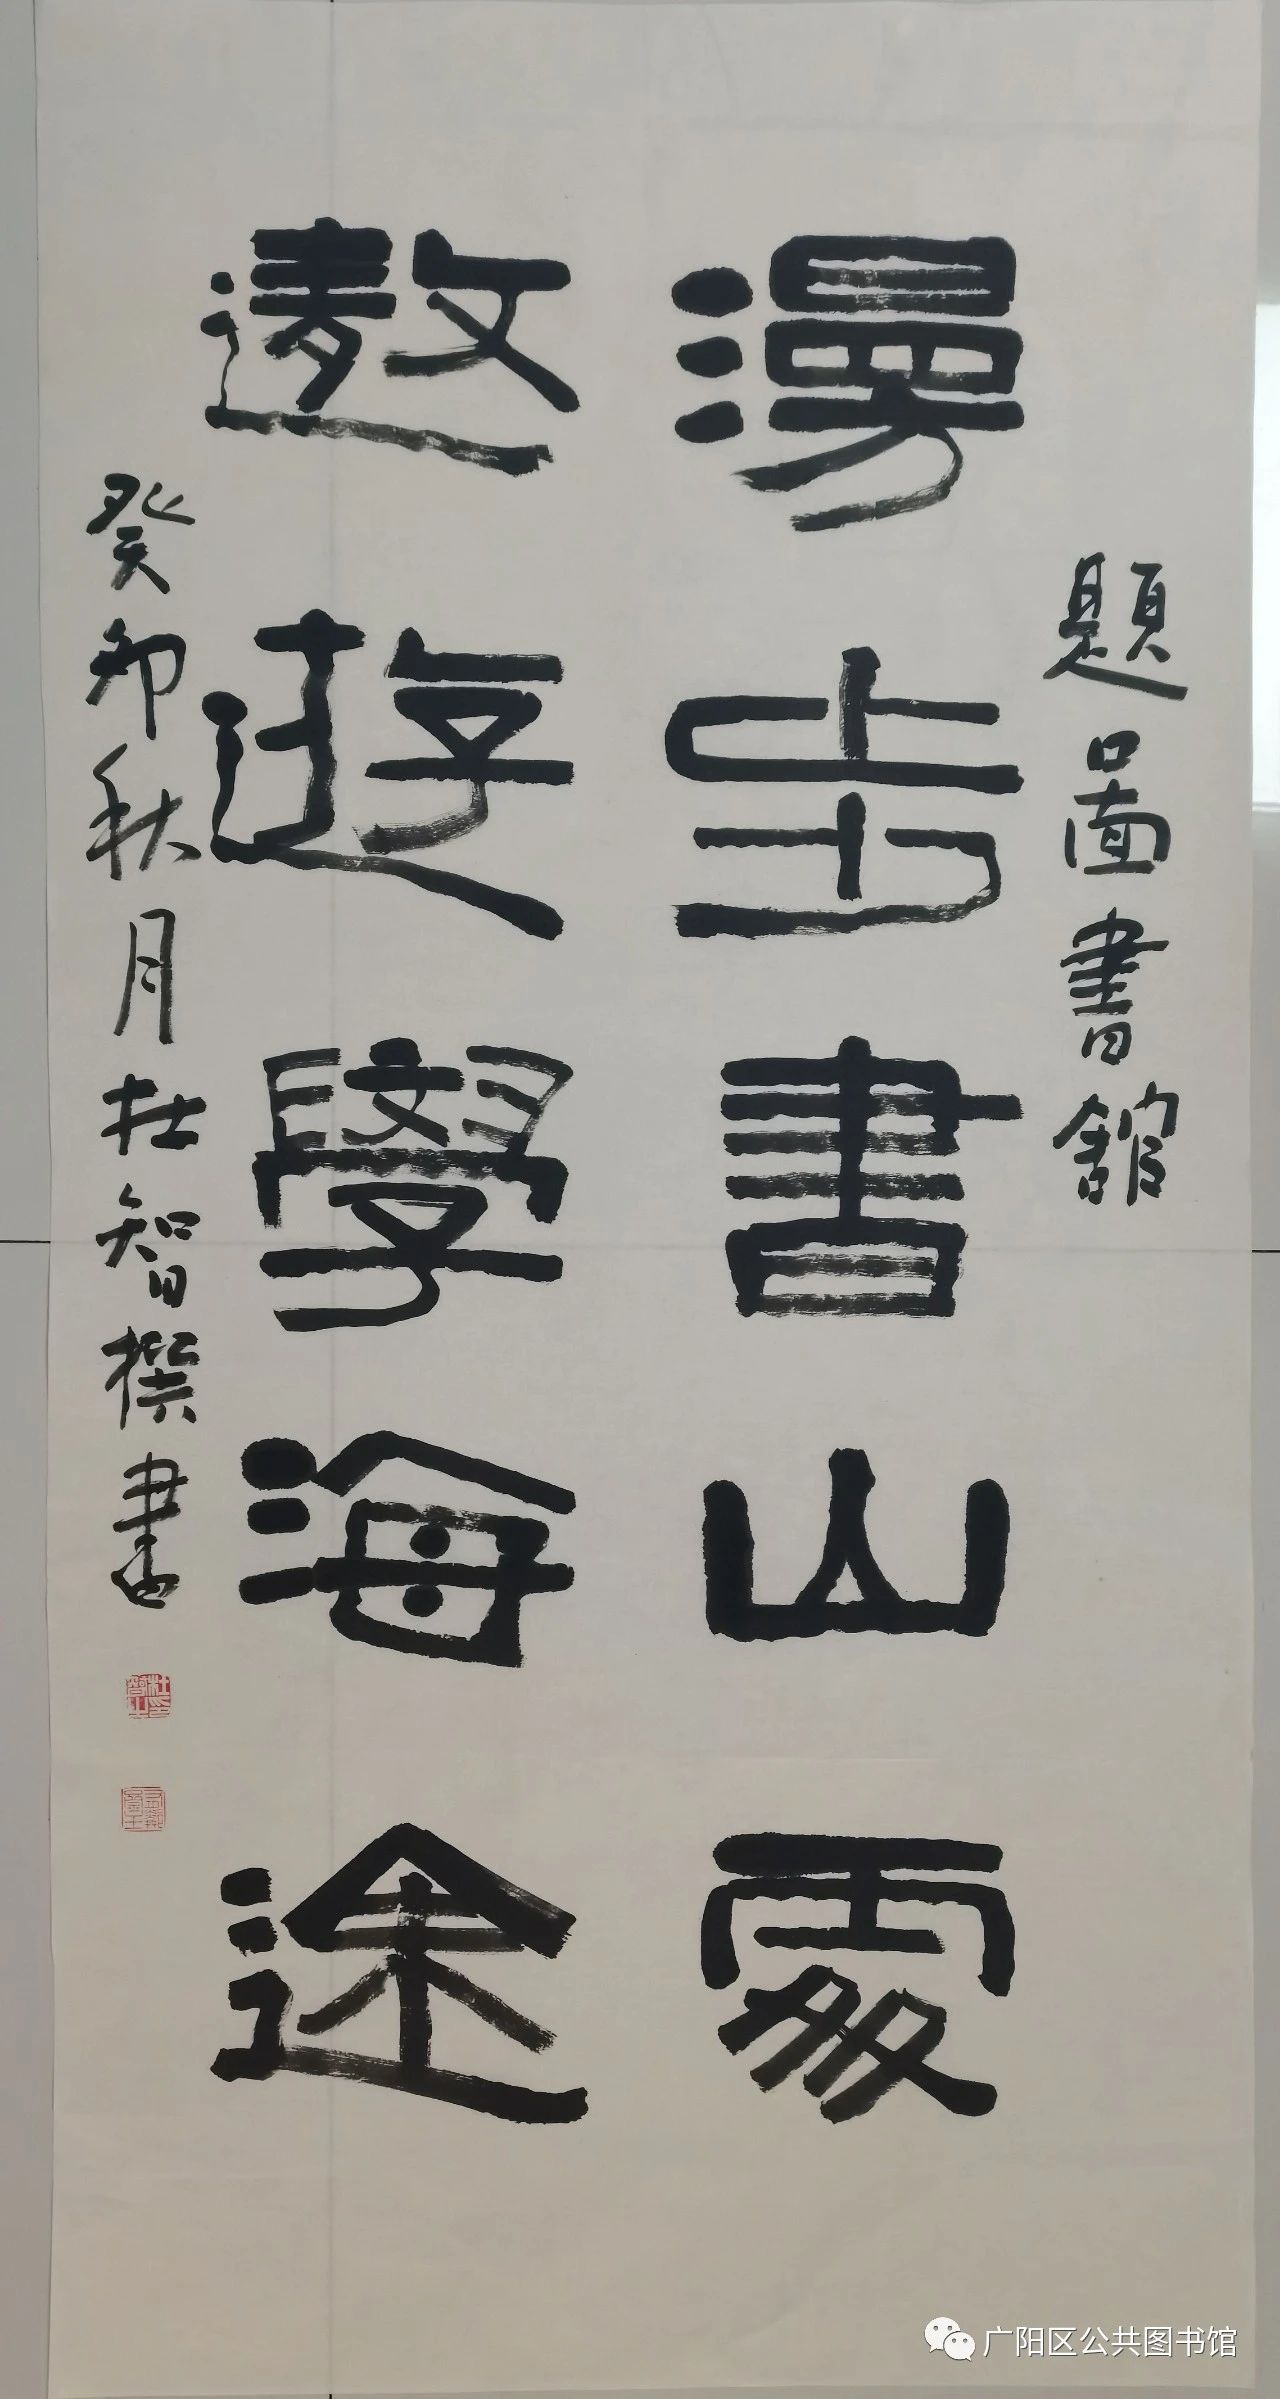 題圖書館
漫步書山處
遨遊學海途
癸卯秋月杜智撰書
广阳区公共图书馆